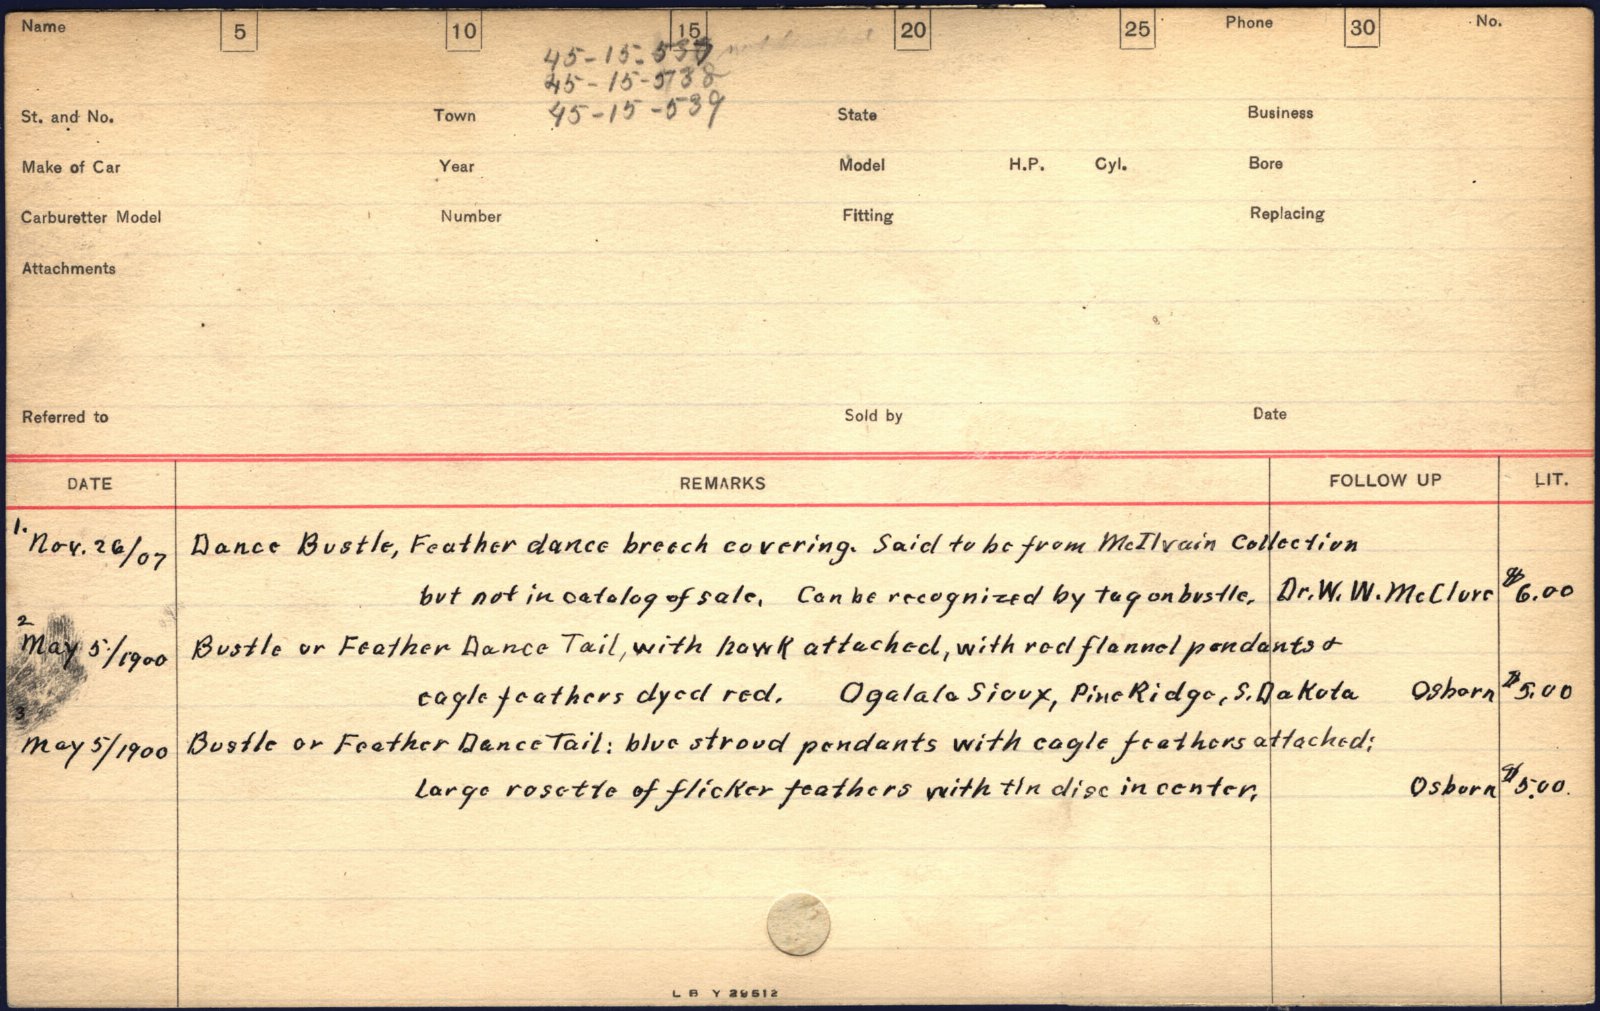 Name 5 10 15 20 25 Phone 30 No.
45-15-537
45-15-538
45-15-539
St. and No. Town State Business
Make of Car Year Model H.P. Cyl. Bore
Carburetter Model Number Fitting Replacing
Attachments
Referred to Sold by Date
DATE REMARKS FOLLOW UP LIT.
1. Nov. 26/07 Dance Bustle, Feather dance breech covering. Said to be from McIlvain Collection
but not in catalog of sale. Can be recognized by tag on bustle. Dr. W. W. McClure $6.00
2 May 5/1900 Bustle or Feather Dance Tail, with hawk attached, with red flannel pendants &
eagle feathers dyed red. Ogalala Sioux, Pine Ridge, S. Dakota Osborn $5.00
3 May 5/1900 Bustle or Feather Dance Tail: blue stroud pendants with eagle feathers attached;
large rosette of flicker feathers with tin disc in center. Osborn $5.00.
L B Y 29512